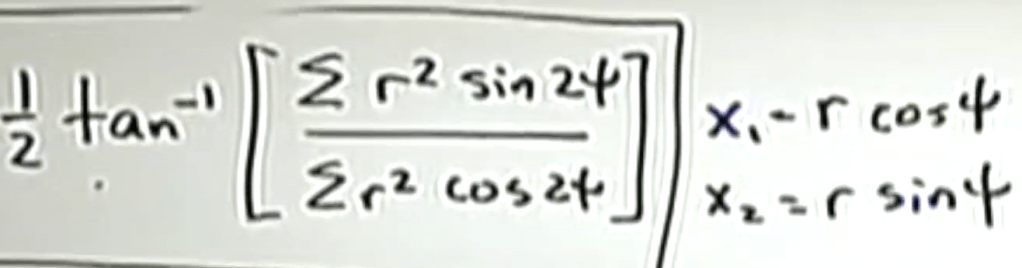 ½ tan⁻¹ [ Σ r² sin 2ψ / Σ r² cos 2ψ ]
x₁ = r cos ψ
x₂ = r sin ψ